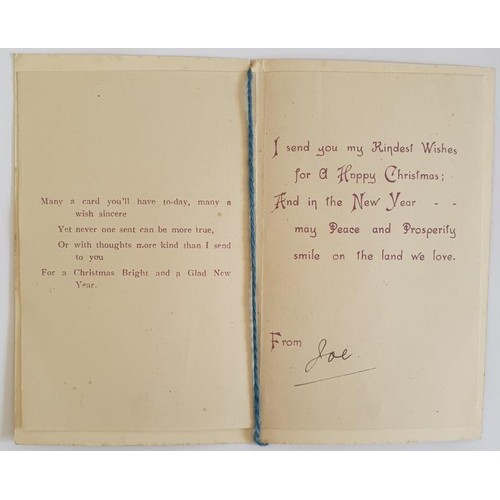 Many a card you'll have to-day, many a
wish sincere
Yet never one sent can be more true,
Or with thoughts more kind than I send
to you
For a Christmas Bright and a Glad New
Year.
I send you my Kindest Wishes
for a Happy Christmas;
And in the New Year - -
may Peace and Prosperity
smile on the land we love.
From
Joe